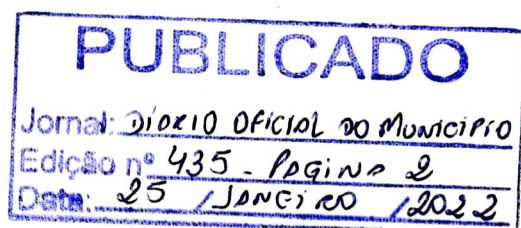 PUBLICADO
Jornal: DIÁRIO OFICIAL DO MUNICÍPIO
Edição nº 435 - PÁGINA 2
Data: 25 / JANEIRO / 2022